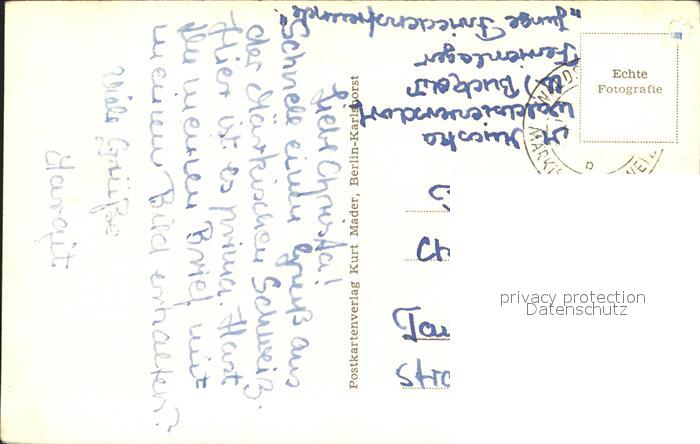 Liebe Christa!
Schnell einen Gruß aus
der Märkischen Schweiz.
Hier ist es prima. Hast
Du meinen Brief mit
meinem Bild erhalten?
Viele Grüße
Margit
Postkartenverlag Kurt Mader, Berlin-Karlshorst
Waldsieversdorf
Buckow
Ferienlager
"Junge Friedensfreunde"
Echte
Fotografie
MÄRKI
privacy protection
Datenschutz